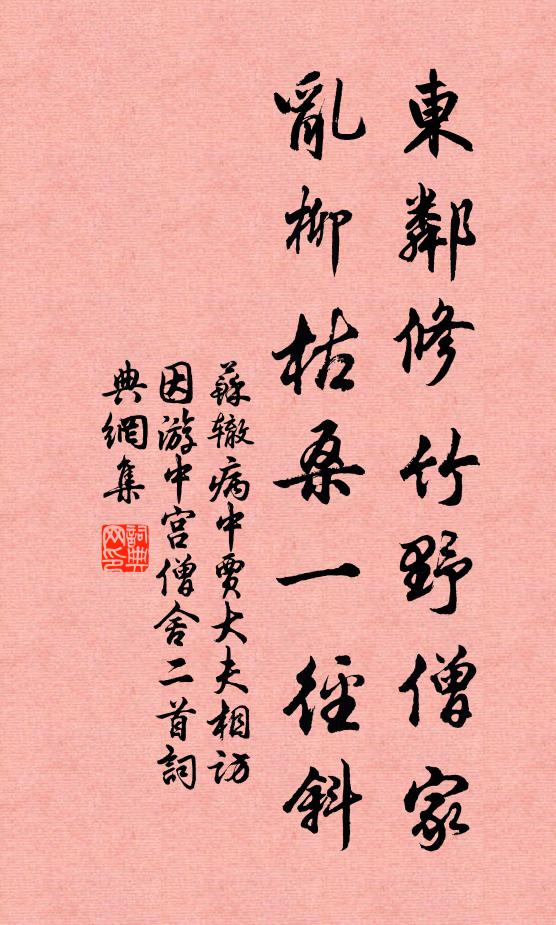 東鄰修竹野僧家
亂柳枯桑一徑斜
蘇辙病中賈大夫相訪
因游中宫僧舍二首詞
典網集
詞典
网印